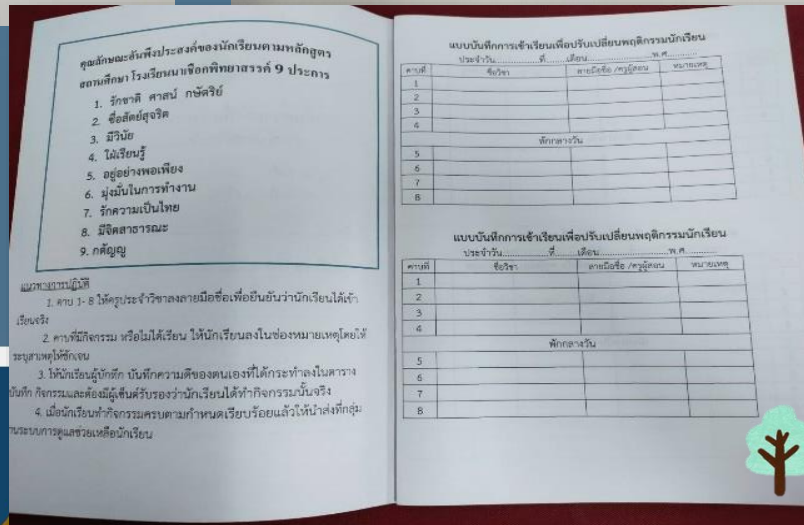 คุณลักษณะอันพึงประสงค์ของนักเรียนตามหลักสูตร
สถานศึกษา โรงเรียนนาเชือกพิทยาสรรค์ 9 ประการ
1. รักชาติ ศาสน์ กษัตริย์
2. ซื่อสัตย์สุจริต
3. มีวินัย
4. ใฝ่เรียนรู้
5. อยู่อย่างพอเพียง
6. มุ่งมั่นในการทำงาน
7. รักความเป็นไทย
8. มีจิตสาธารณะ
9. กตัญญู
แนวทางการปฏิบัติ
1. คาบ 1- 8 ให้ครูประจำวิชาลงลายมือชื่อเพื่อยืนยันว่านักเรียนได้เข้า
เรียนจริง
2. คาบที่มีกิจกรรม หรือไม่ได้เรียน ให้นักเรียนลงในช่องหมายเหตุโดยให้
ระบุสาเหตุให้ชัดเจน
3. ให้นักเรียนผู้บันทึก บันทึกความดีของตนเองที่ได้กระทำลงในตาราง
บันทึก กิจกรรมและต้องมีผู้เซ็นต์รับรองว่านักเรียนได้ทำกิจกรรมนั้นจริง
4. เมื่อนักเรียนทำกิจกรรมครบตามกำหนดเรียบร้อยแล้วให้นำส่งที่กลุ่ม
านระบบการดูแลช่วยเหลือนักเรียน
แบบบันทึกการเข้าเรียนเพื่อปรับเปลี่ยนพฤติกรรมนักเรียน
ประจำวัน..............ที่.......เดือน..................พ.ศ.............
คาบที่ ชื่อวิชา ลายมือชื่อ /ครูผู้สอน หมายเหตุ
1
2
3
4
พักกลางวัน
5
6
7
8
แบบบันทึกการเข้าเรียนเพื่อปรับเปลี่ยนพฤติกรรมนักเรียน
ประจำวัน..............ที่.......เดือน..................พ.ศ.............
คาบที่ ชื่อวิชา ลายมือชื่อ /ครูผู้สอน หมายเหตุ
1
2
3
4
พักกลางวัน
5
6
7
8